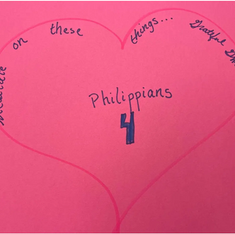 on these things... Grateful
Philippians
4